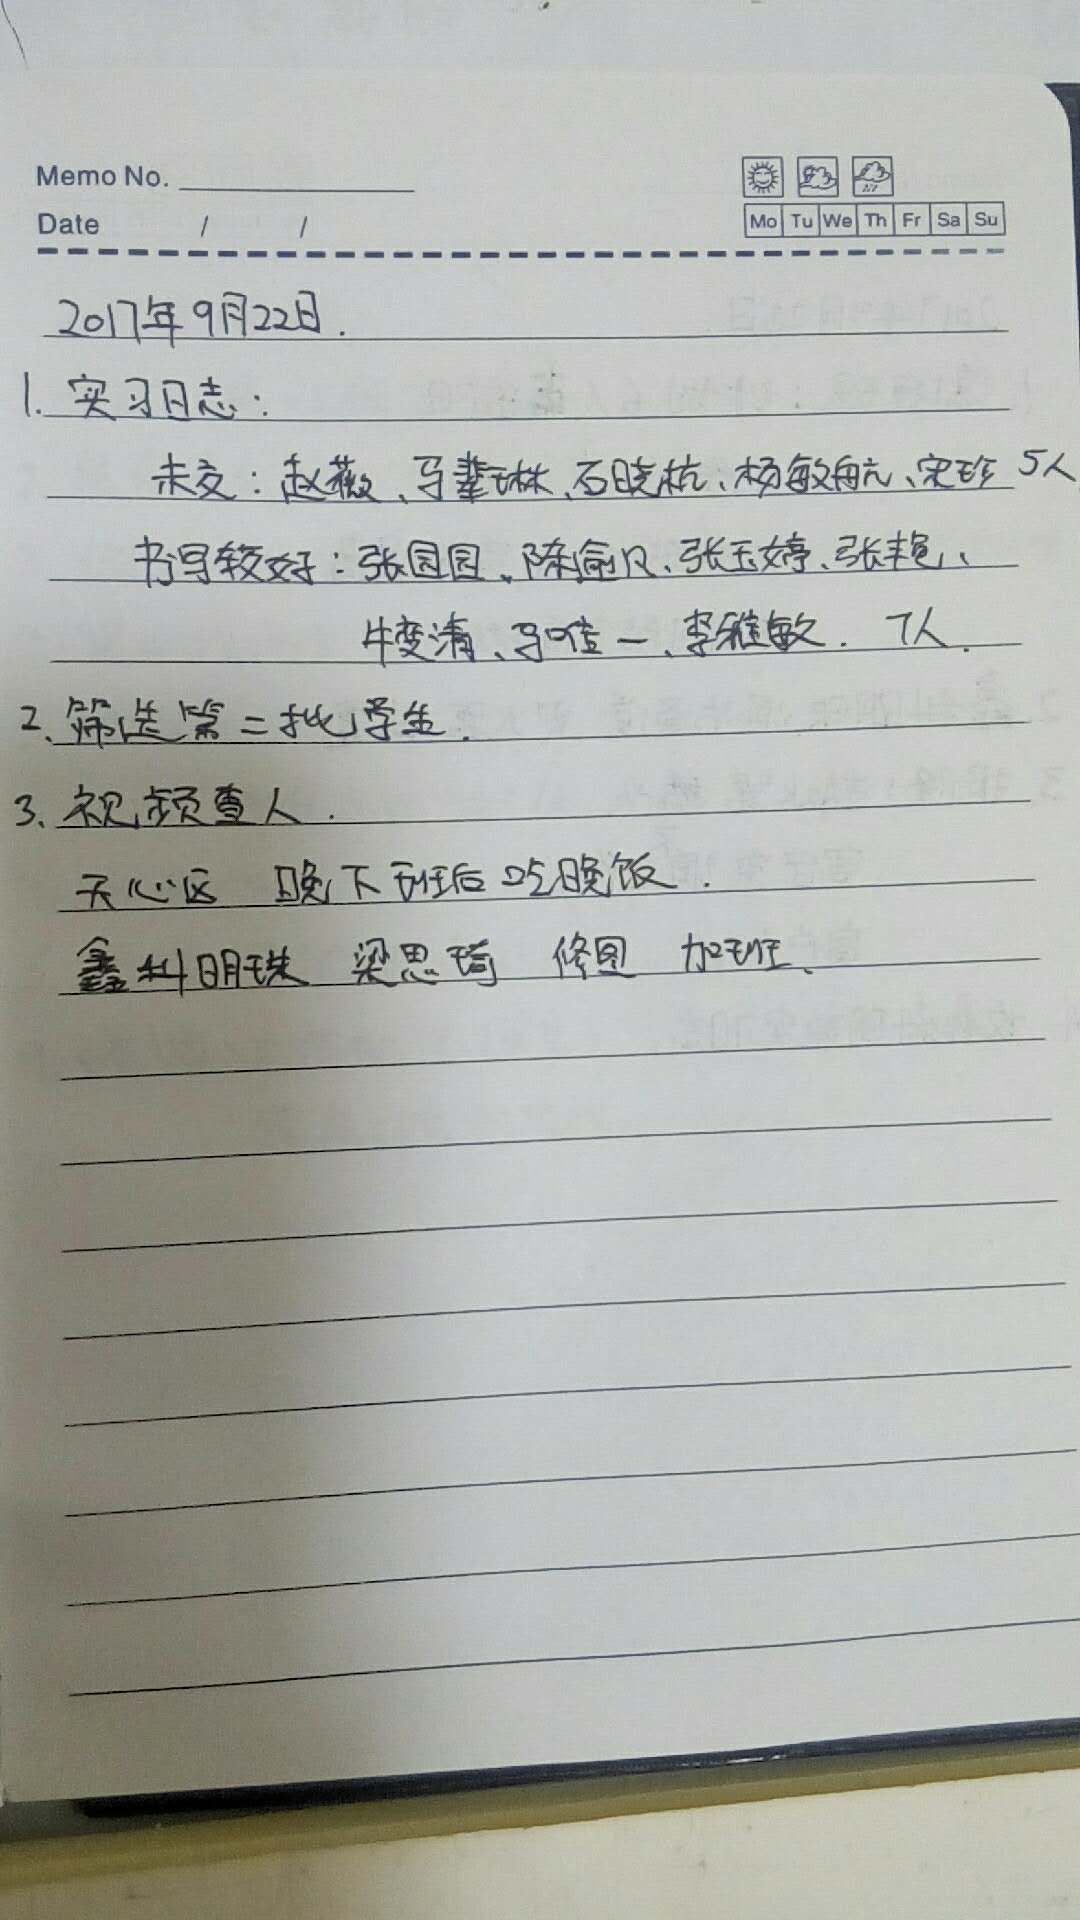 Memo No.
Date / /
Mo Tu We Th Fr Sa Su
2017年9月22日.
1. 实习日志:
未交:赵薇、马 琳、石晓杭、杨敏航、宋珍 5人
书写较好:张园园、陈俞凡、张玉婷、张艳、
牛变清、马唯一、李雅敏. 7人.
2、筛选第二批学生.
3、视频查人.
天心区 晚下班后吃晚饭.
鑫科明珠 梁思琦 修图 加班、